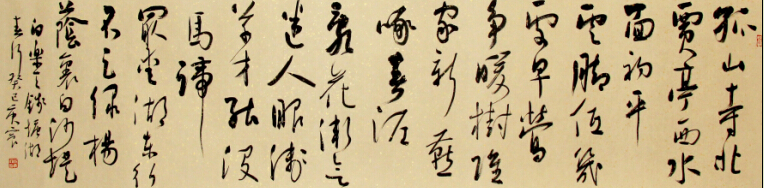 孤山寺北
賈亭西水
面初平
雲腳低幾
處早鶯
爭暖樹誰
家新燕
啄春泥
亂花漸欲
迷人眼淺
草才能沒
馬蹄
最愛湖東行
不足綠楊
蔭裏白沙堤
白樂天錢塘湖
春行癸巳